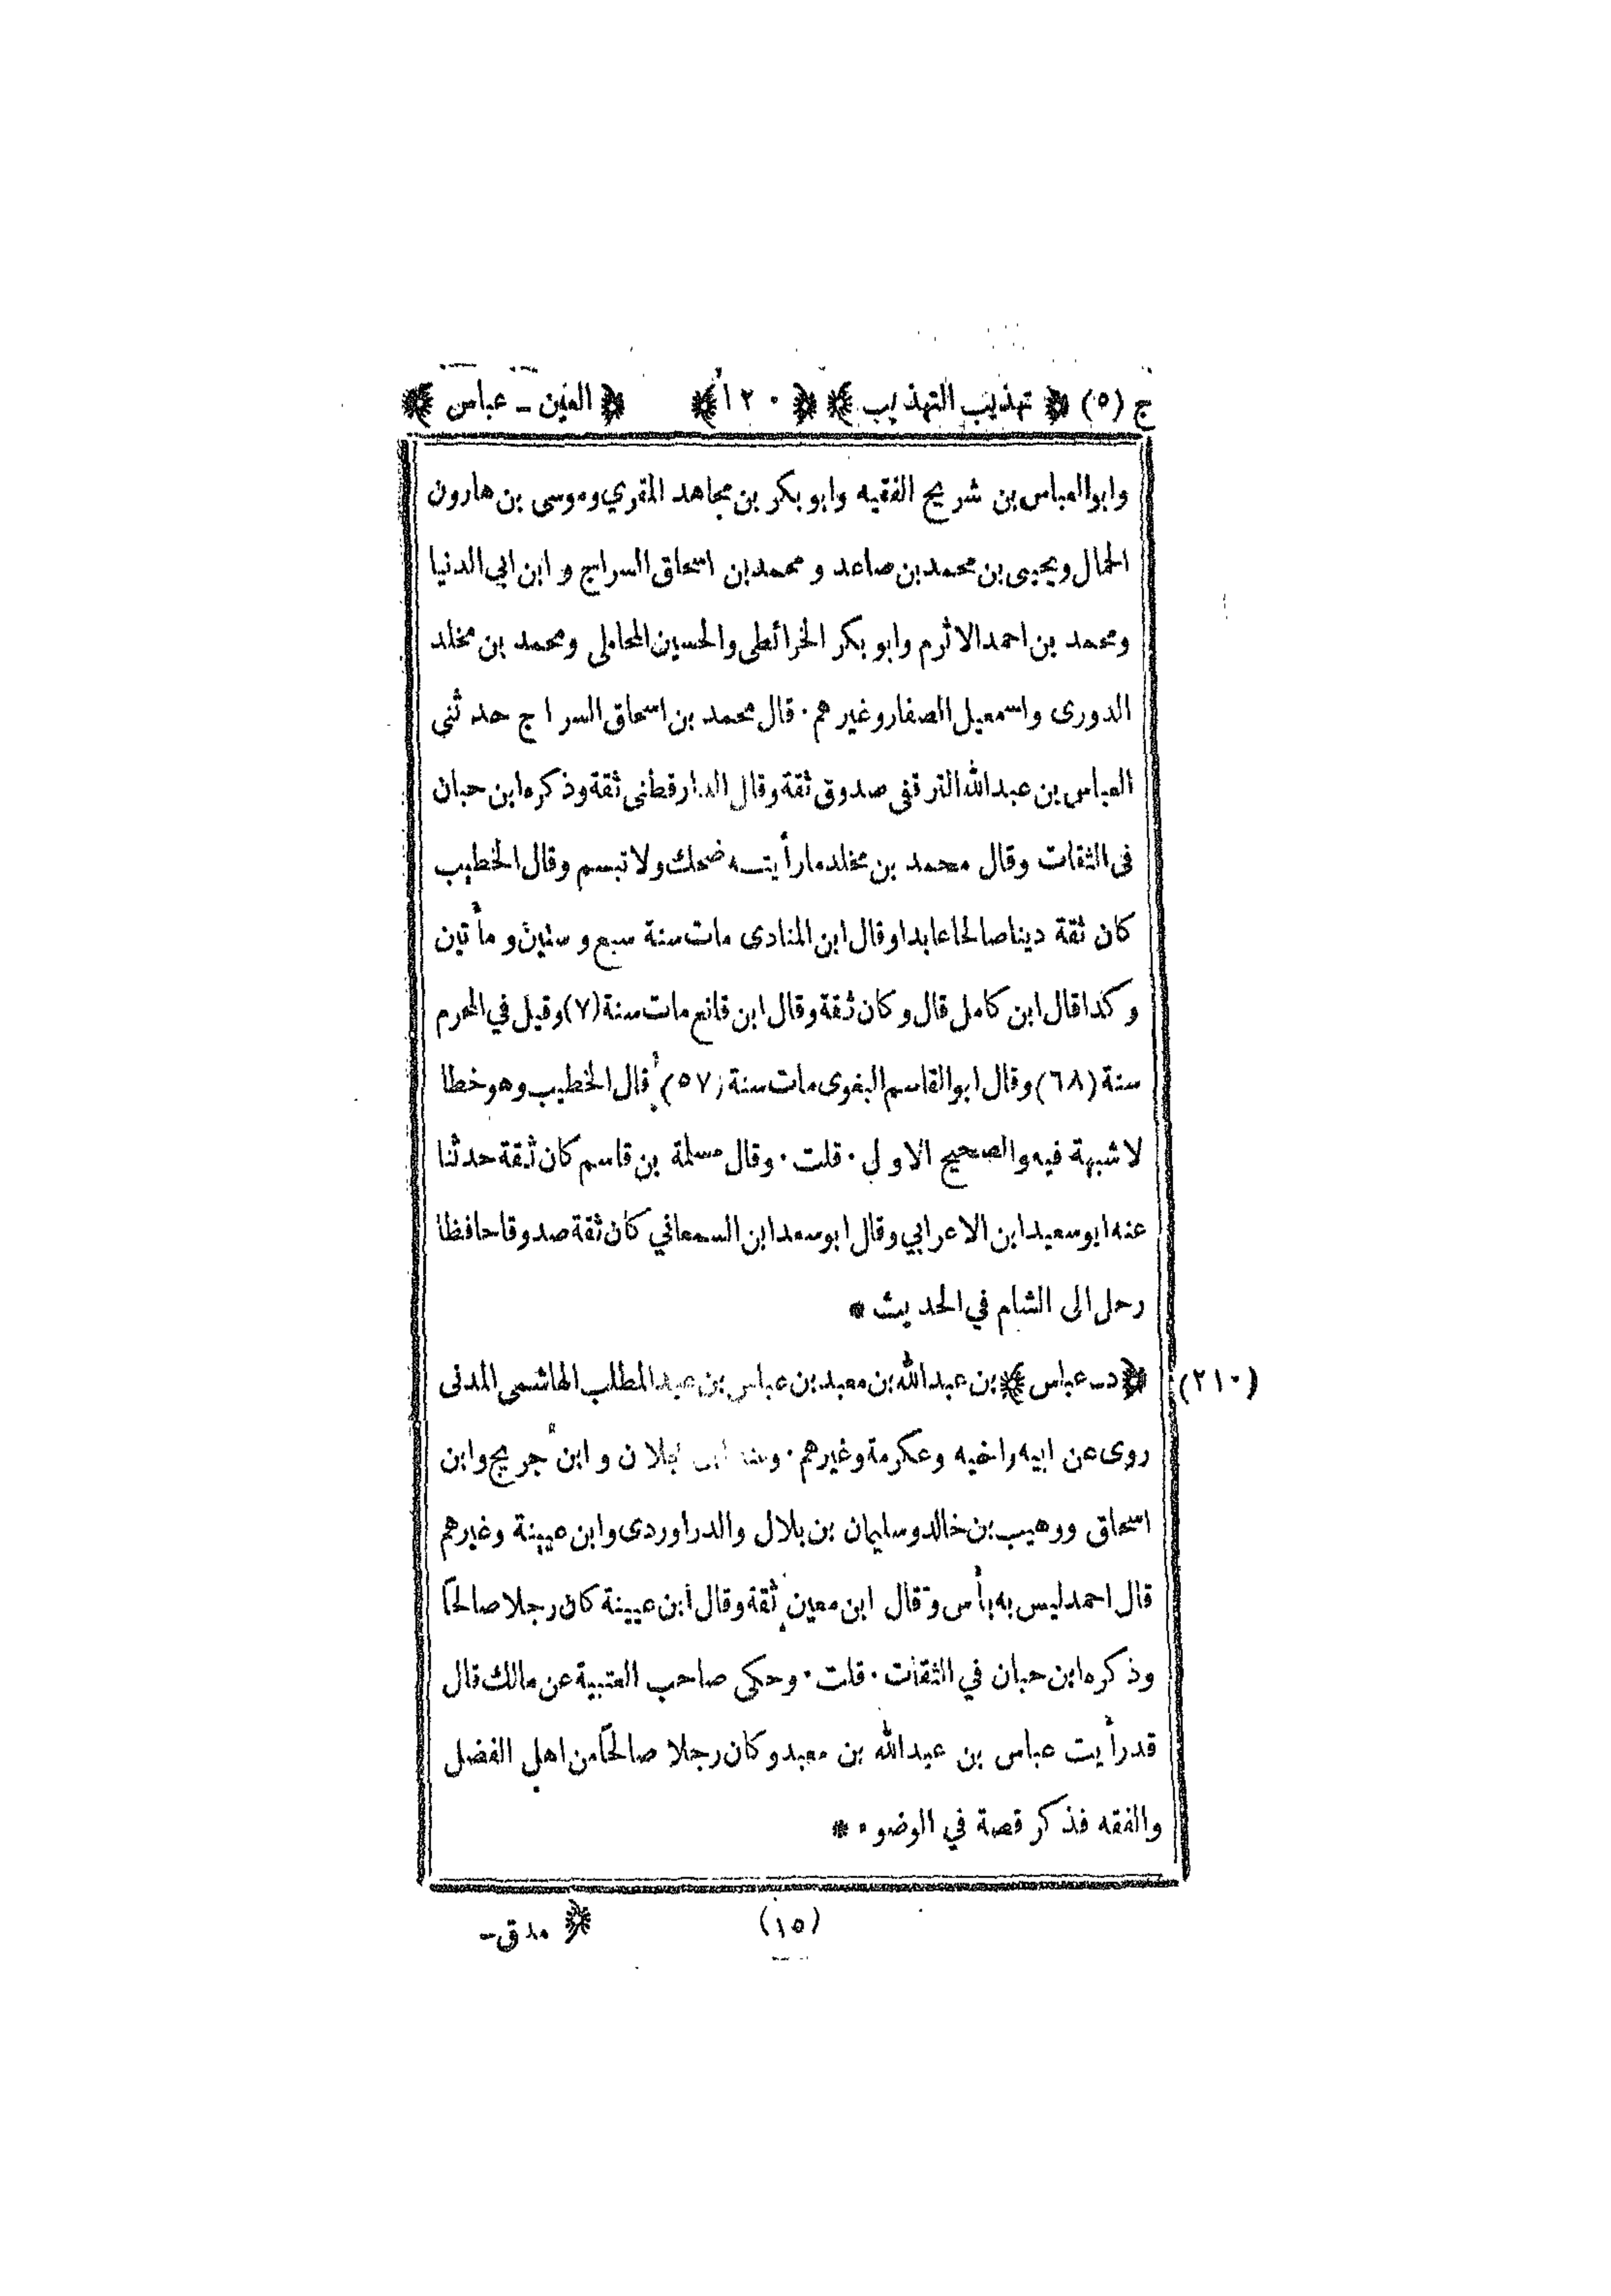 ج (٥) ﴿ تهذيب التهذيب ﴾ ﴿ ١٢٠ ﴾ ﴿ العين - عباس ﴾
وابوالعباس بن شريح الفقيه وابو بكر بن مجاهد المقري وموسى بن هارون
الحمال ويحيى بن محمد بن صاعد و محمد بن اسحاق السراج و ابن ابي الدنيا
ومحمد بن احمد الاثرم وابو بكر الخرائطى والحسين المحاملى ومحمد بن مخلد
الدورى واسمعيل الصفار وغير هم · قال محمد بن اسحاق السراج حد ثني
العباس بن عبدالله الترقفى صدوق ثقة وقال الدارقطنى ثقة وذكره ابن حبان
فى الثقات وقال محمد بن مخلد ما رأيته ضحك ولا تبسم وقال الخطيب
كان ثقة دينا صالحا عابدا وقال ابن المنادى مات سنة سبع و ستين و مأتين
وكذا قال ابن كامل قال وكان ثقة وقال ابن قانع مات سنة (٧) وقيل في المحرم
سنة (٦٨) وقال ابوالقاسم البغوى مات سنة (٥٧) قال الخطيب وهو خطا
لا شبهة فيه والصحيح الاول · قلت · وقال مسلمة بن قاسم كان ثقة حدثنا
عنه ابو سعيد ابن الاعرابي وقال ابو سعد ابن السمعاني كان ثقة صدوقا حافظا
رحل الى الشام في الحديث *
(٢١٠) ﴿ د - عباس ﴾ بن عبدالله بن معبد بن عباس بن عبد المطلب الهاشمى المدنى
روى عن ابيه واخيه وعكرمة وغيرهم · وعنه ابن عجلان و ابن جريج وابن
اسحاق ووهيب بن خالد وسليمان بن بلال والدراوردى وابن عيينة وغيرهم
قال احمد ليس به بأس وقال ابن معين ثقة وقال ابن عيينة كان رجلا صالحاً
وذكره ابن حبان في الثقات · قلت · وحكى صاحب العتبية عن مالك قال
قد رأيت عباس بن عبدالله بن معبد وكان رجلا صالحاً من اهل الفضل
والفقه فذكر قصة في الوضوء *
(١٥) ﴿ مدق -